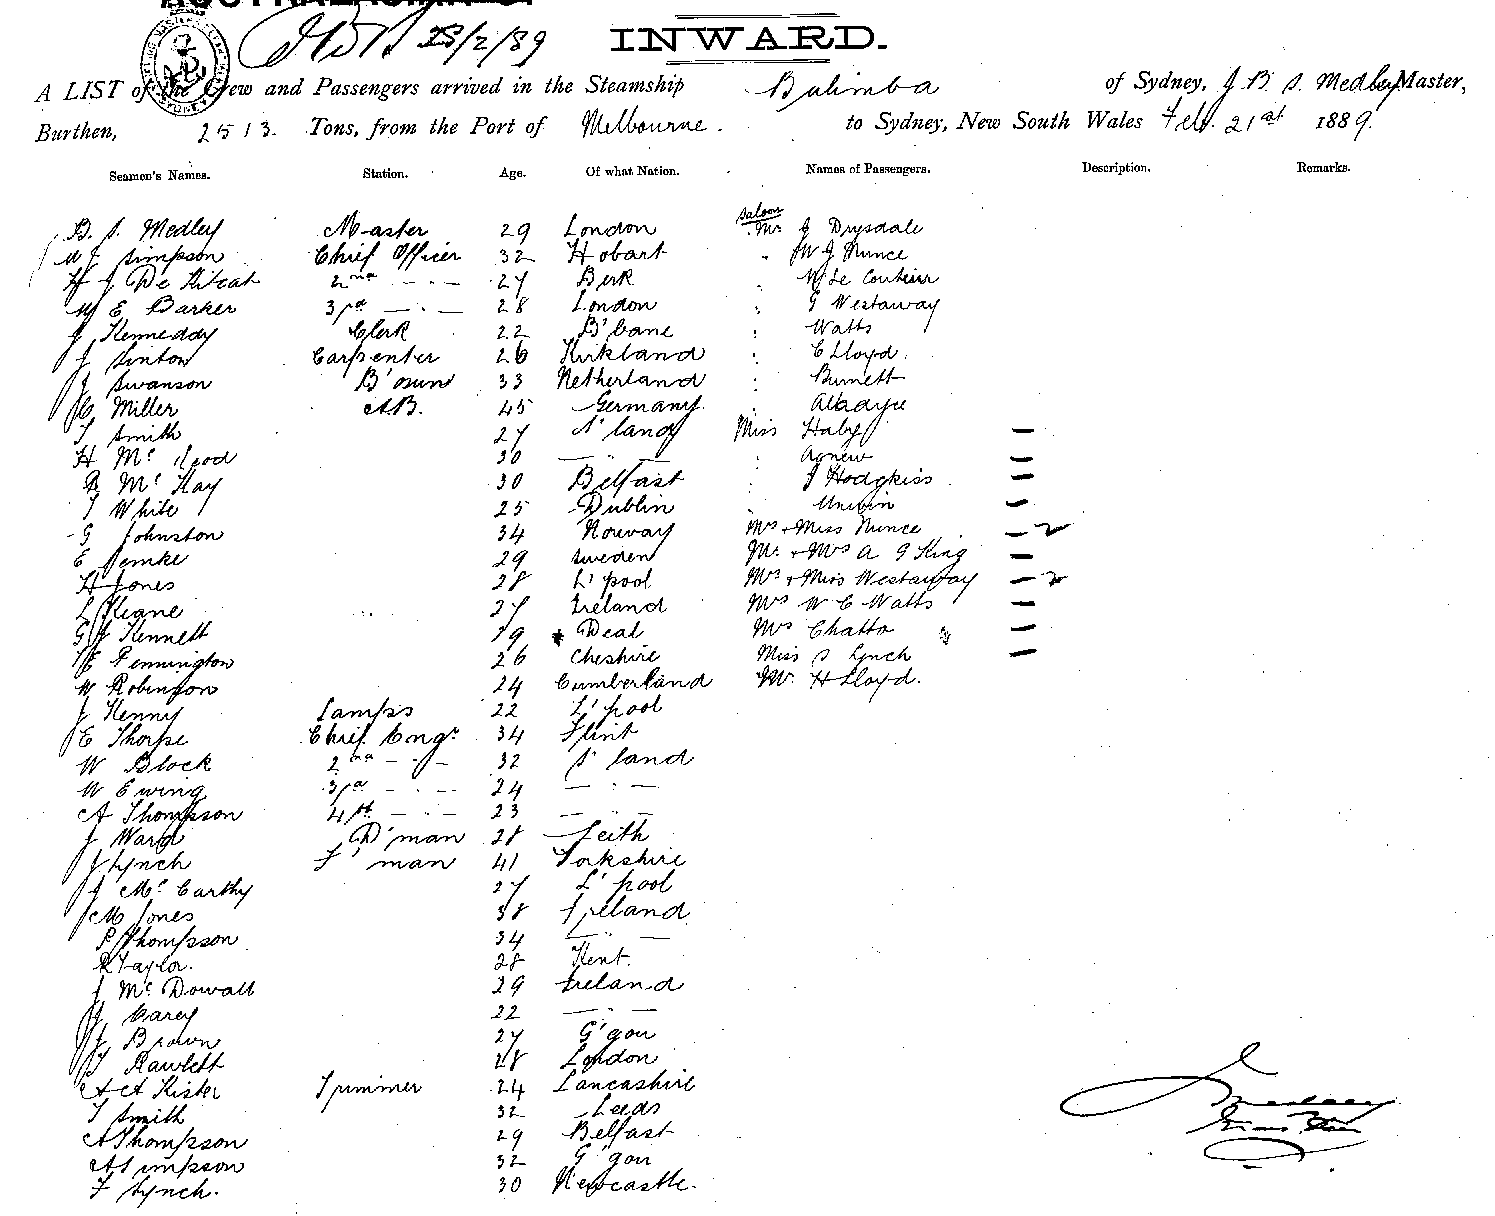 INWARD.
28/2/89
A LIST of the Crew and Passengers arrived in the Steamship Bulimba of Sydney, J B S. Medley Master,
Burthen, 2513. Tons, from the Port of Melbourne. to Sydney, New South Wales Feb. 21st 1889.
Seamen's Names. Station. Age. Of what Nation. Names of Passengers. Description. Remarks.
Saloon
B. S. Medley Master 29 London Mr J Drysdale
Simpson Chief Officer 32 Hobart " W J Nunce
H J De Kitcat 2nd — " — 27 Beik " Le Couteur
E Barker 3rd — " — 28 London " G Westaway
J Kenneddy Clerk 22 B'bane " Watts
J Sinton Carpenter 26 Kirkland " C Lloyd.
J Swanson B'osun 33 Netherland " Burnett
C Miller A.B. 45 Germany.
T Smith 27 S'land Miss Haby —
H Mc 30 — " — " Agnew —
R Mc Kay 30 Belfast " J Hodgkiss —
T White 25 Dublin " Unwin —
G Johnston 34 Norway Mrs + Miss Nunce — 2
E Jemke 29 Sweden Mr. + Mrs A G King —
H Jones 28 L'pool Mrs + Miss Westaway — 2
L Keane 27 Ireland Mrs W C Watts —
G J Kennett 19 Deal Mrs Chatto —
E Pennington 26 Cheshire Miss S Lynch —
W Robinson 24 Cumberland Mr. H Lloyd.
J Kenny Lamps 22 L'pool
E Thorpe Chief Engr 34 Flint
W Block 2nd — " — 32 S'land
W Ewing 3rd — " — 24 — " —
A Thompson 4th — " — 23 — " —
J Ward D'man 28 Leith
J Lynch F'man 41 Yorkshire
J Mc Carthy 27 L'pool
M Jones 38 Ireland
P Thompson 34 — " —
R Taylor. 28 Kent.
J Mc Dowall 29 Ireland
J Carey 22 — " —
J Brown 27 G'gou
T Rawlett 28 London
A A Kister Trimmer 24 Lancashire
T Smith 32 Leeds
A Thompson 29 Belfast
A Simpson 32 G'gou
F Lynch. 30 Newcastle.
Medley